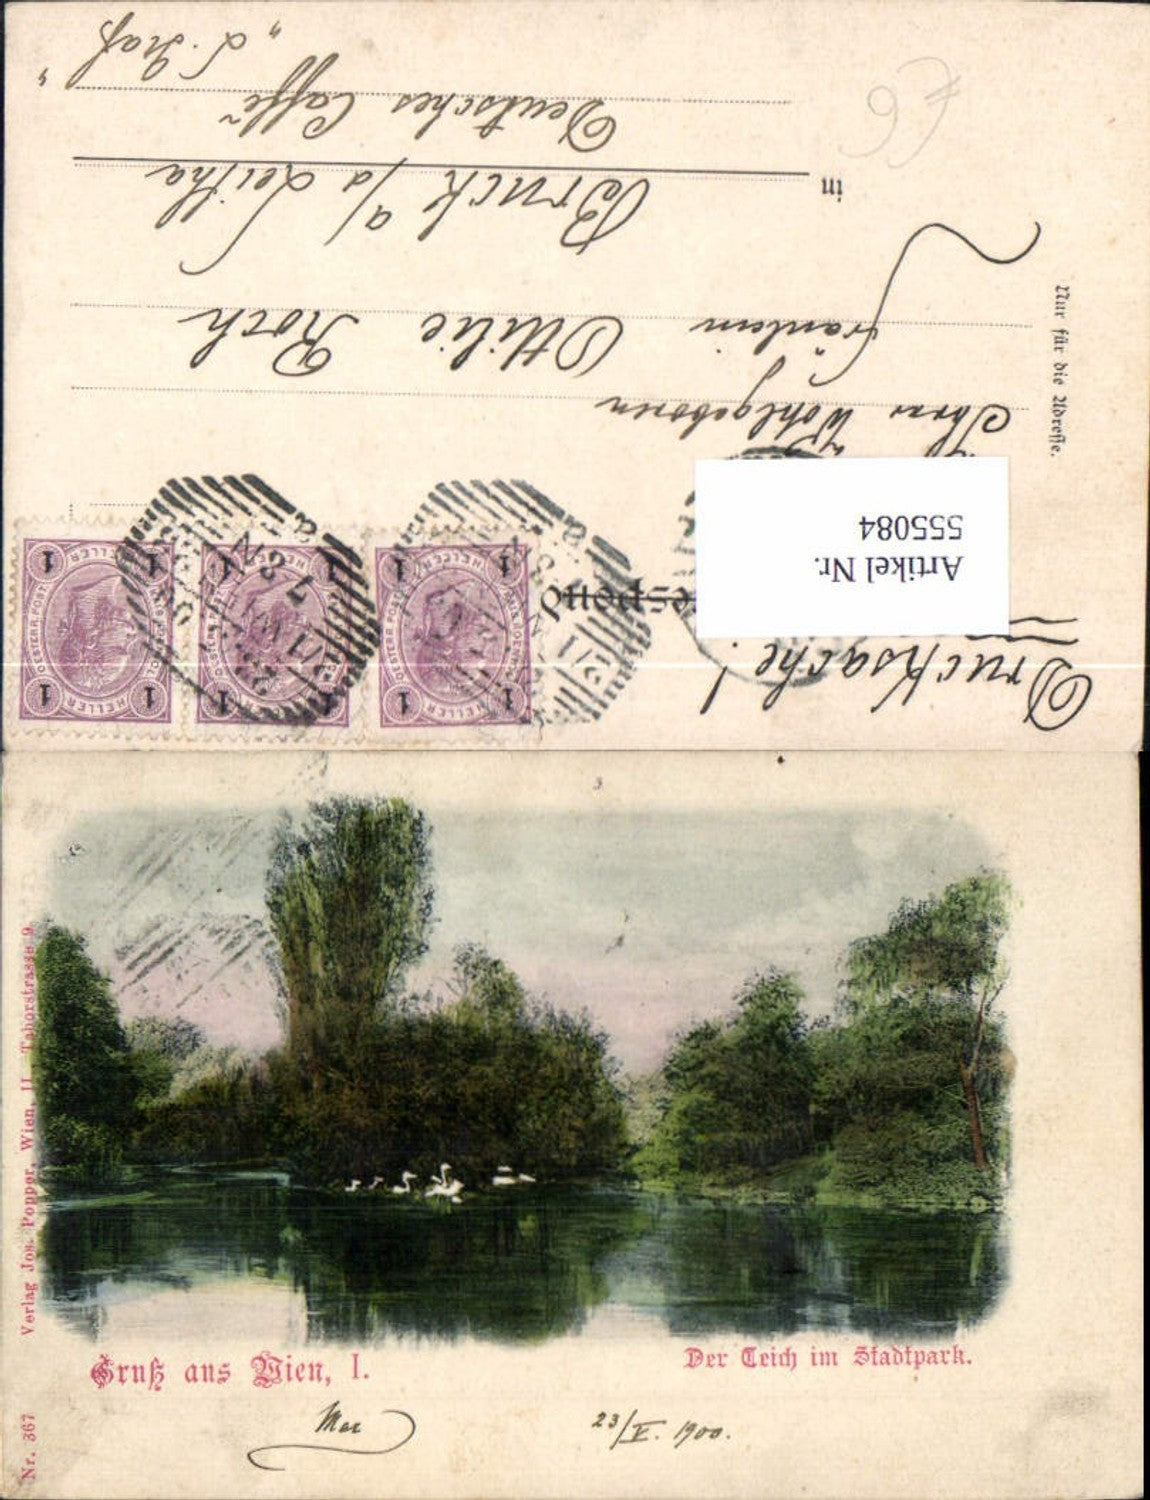 Drucksache!
Artikel Nr.
555084
Ihrer Wohlgeboren
Fräulein Ottilie Roch
in Bruck a/d Leitha
Deutsches Caffé
„L. Graf"
Nur für die Adresse.
1 1 1 1
HELLER HELLER
OESTERR. POST.
1 1 1 1
1 1 1 1
Gruß aus Wien, I.
Der Teich im Stadtpark.
23/V. 1900.
Verlag Jos. Popper, Wien, II Taborstrasse 9.
Nr. 367